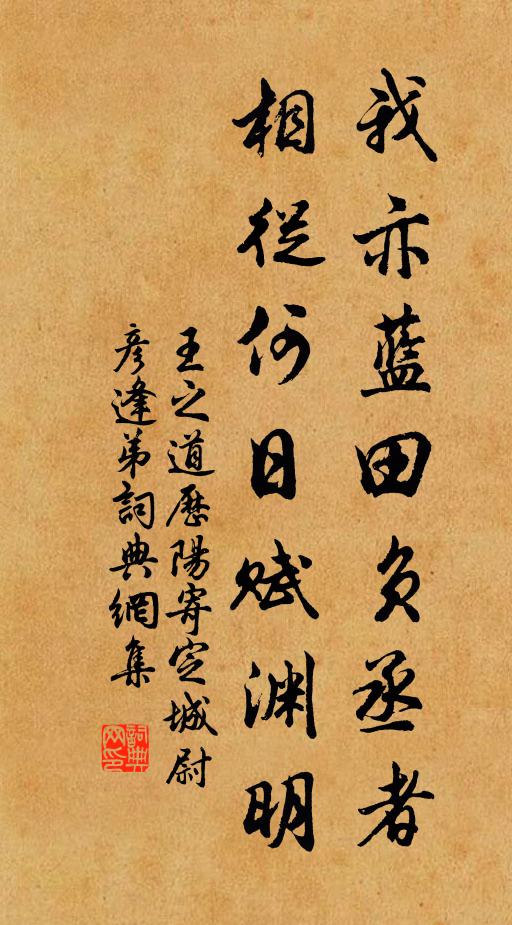 我亦藍田負丞者
相從何日賦淵明
王之道歷陽寄定城尉
彥逢弟詞典網集
詞典網印